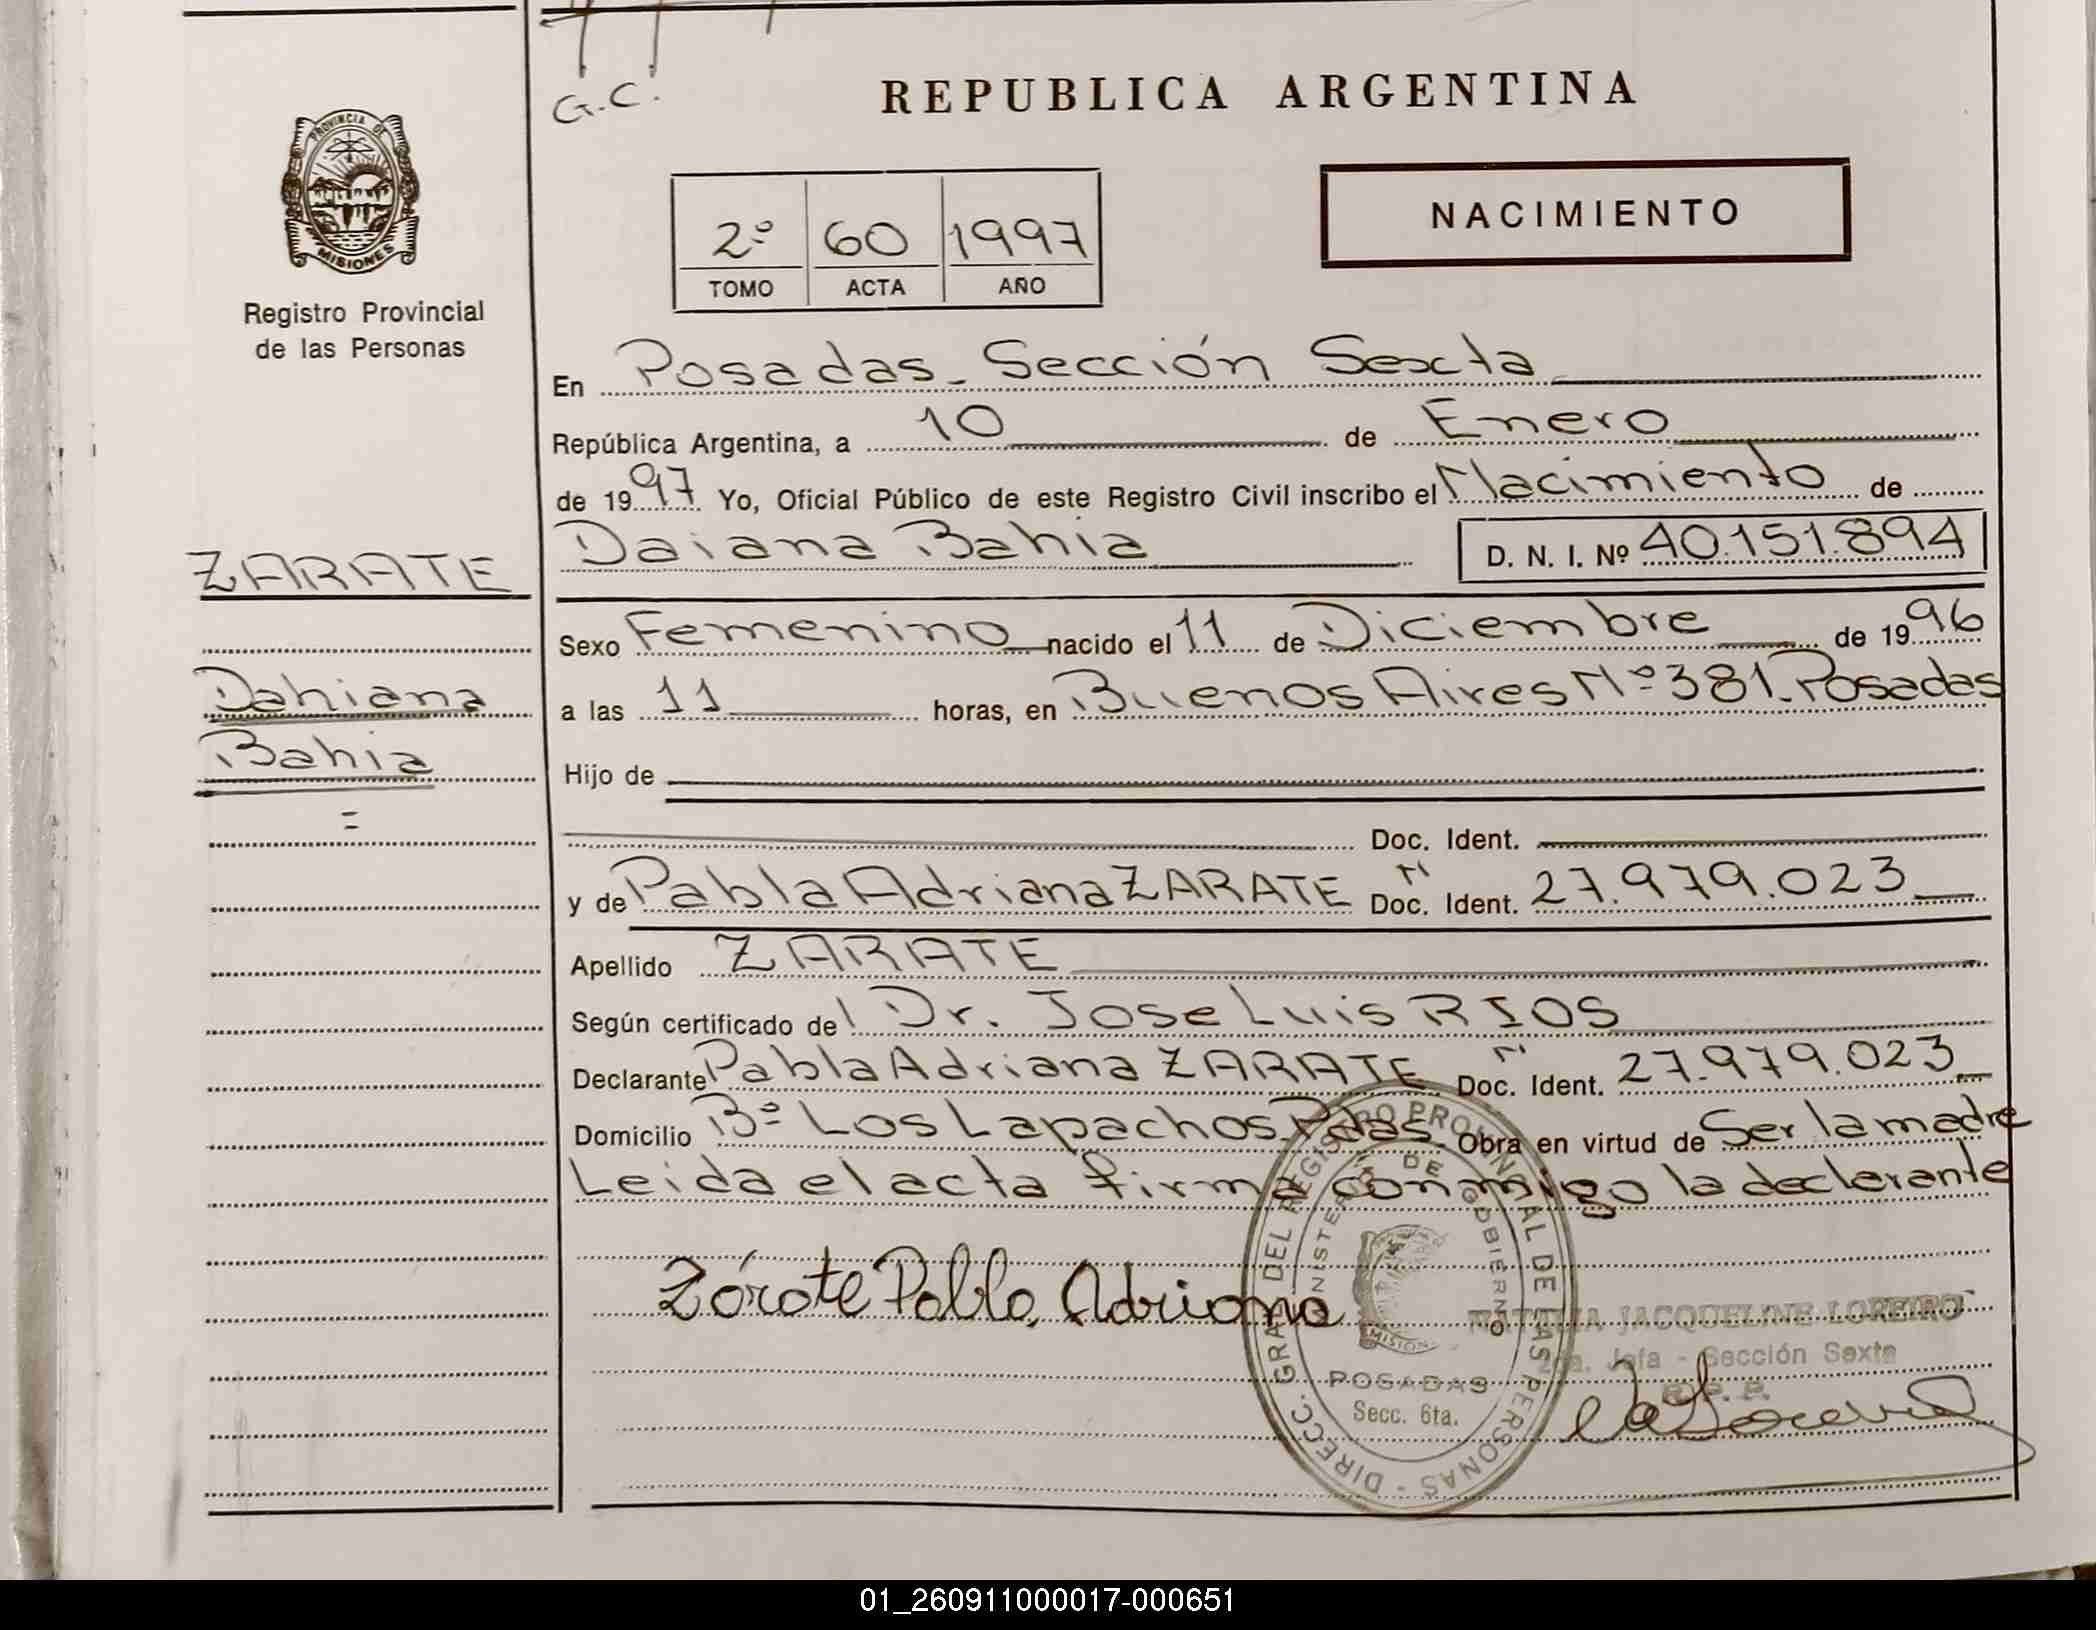 G.C.
REPUBLICA ARGENTINA
PROVINCIA DE
MISIONES
Registro Provincial
de las Personas
2º 60 1997
TOMO ACTA AÑO
NACIMIENTO
En Posadas - Sección Sexta
República Argentina, a 10 de Enero
de 1997 Yo, Oficial Público de este Registro Civil inscribo el Nacimiento de
ZARATE
Daiana Bahia D. N. I. Nº 40.151.894
Sexo Femenino nacido el 11 de Diciembre de 1996
Dahiana
a las 11 horas, en Buenos Aires Nº 381 - Posadas
Bahia
Hijo de
=
Doc. Ident.
y de Pabla Adriana ZARATE Doc. N Ident. 27.979.023
Apellido ZARATE
Según certificado del Dr. Jose Luis RIOS
Declarante Pabla Adriana ZARATE Doc. N Ident. 27.979.023
Domicilio Bº Los Lapachos - Pdas. Obra en virtud de Ser la madre
Leida el acta firma conmigo la declarante
Zárate Pabla Adriana
DIRECC. GRAL. DEL REGISTRO PROVINCIAL DE LAS PERSONAS -
MINISTERIO DE GOBIERNO
MISIONES
POSADAS
Secc. 6ta.
JACQUELINE LOREIRO
2da. Jefa - Sección Sexta
R. P. P.
01_260911000017-000651